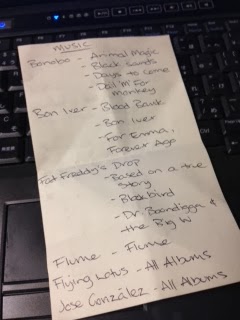 MUSIC
Bonobo - Animal Magic
- Black Sands
- Days to Come
- Dial 'M' For
Monkey
Bon Iver - Blood Bank
- Bon Iver
- For Emma,
Forever Ago
Fat Freddy's Drop
- Based on a true
story
- Blackbird
- Dr Boondigga &
the Big BW
Flume - Flume
Flying Lotus - All Albums
Jose González - All Albums